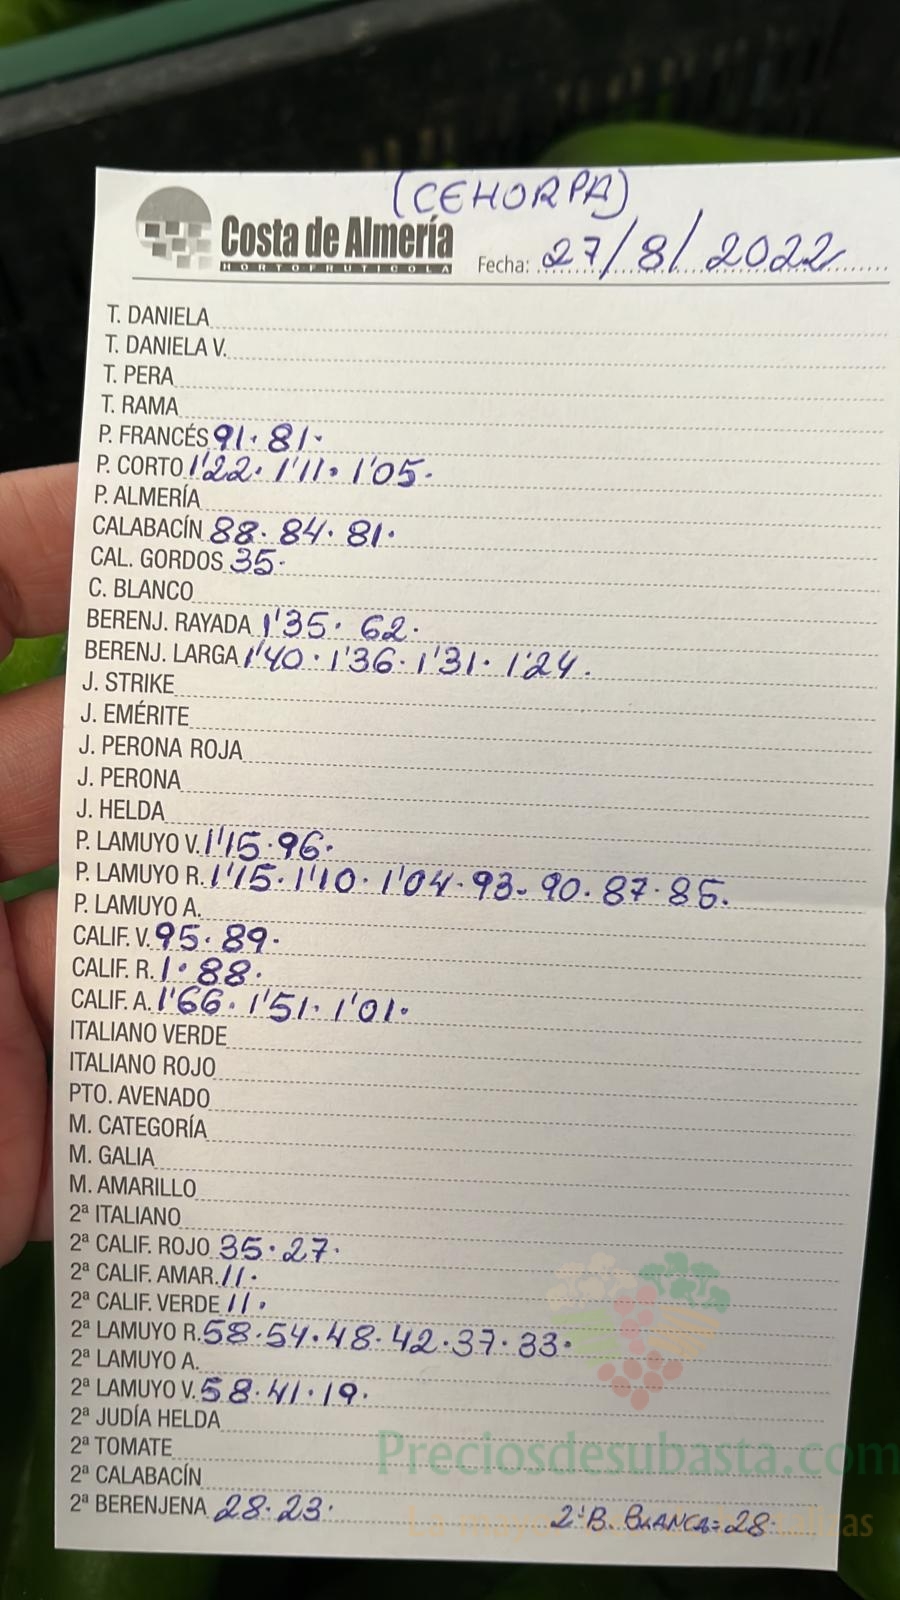 (CEHORPA)
Costa de Almería
HORTOFRUTICOLA
Fecha: 27/8/2022
T. DANIELA
T. DANIELA V.
T. PERA
T. RAMA
P. FRANCÉS 91. 81.
P. CORTO 1'22. 1'11. 1'05.
P. ALMERÍA
CALABACÍN 88. 84. 81.
CAL. GORDOS 35.
C. BLANCO
BERENJ. RAYADA 1'35. 62.
BERENJ. LARGA 1'40. 1'36. 1'31. 1'24.
J. STRIKE
J. EMÉRITE
J. PERONA ROJA
J. PERONA
J. HELDA
P. LAMUYO V. 1'15. 96.
P. LAMUYO R. 1'15. 1'10. 1'04. 93. 90. 87. 85.
P. LAMUYO A.
CALIF. V. 95. 89.
CALIF. R. 1. 88.
CALIF. A. 1'66. 1'51. 1'01.
ITALIANO VERDE
ITALIANO ROJO
PTO. AVENADO
M. CATEGORÍA
M. GALIA
M. AMARILLO
2ª ITALIANO
2ª CALIF. ROJO 35. 27.
2ª CALIF. AMAR. 11.
2ª CALIF. VERDE 11.
2ª LAMUYO R. 58. 54. 48. 42. 37. 33.
2ª LAMUYO A.
2ª LAMUYO V. 58. 41. 19.
2ª JUDÍA HELDA
2ª TOMATE
Preciosdesubasta.com
2ª CALABACÍN
2ª BERENJENA 28. 23. 2ª B. BLANCA = 28.